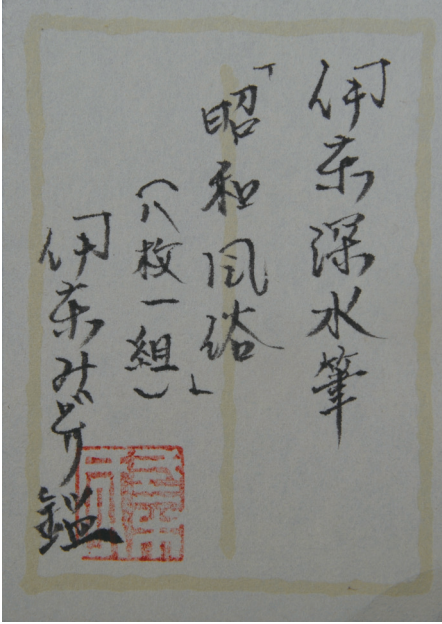 伊東深水筆
「昭和風俗」
(八枚一組)
伊東みどり鑑